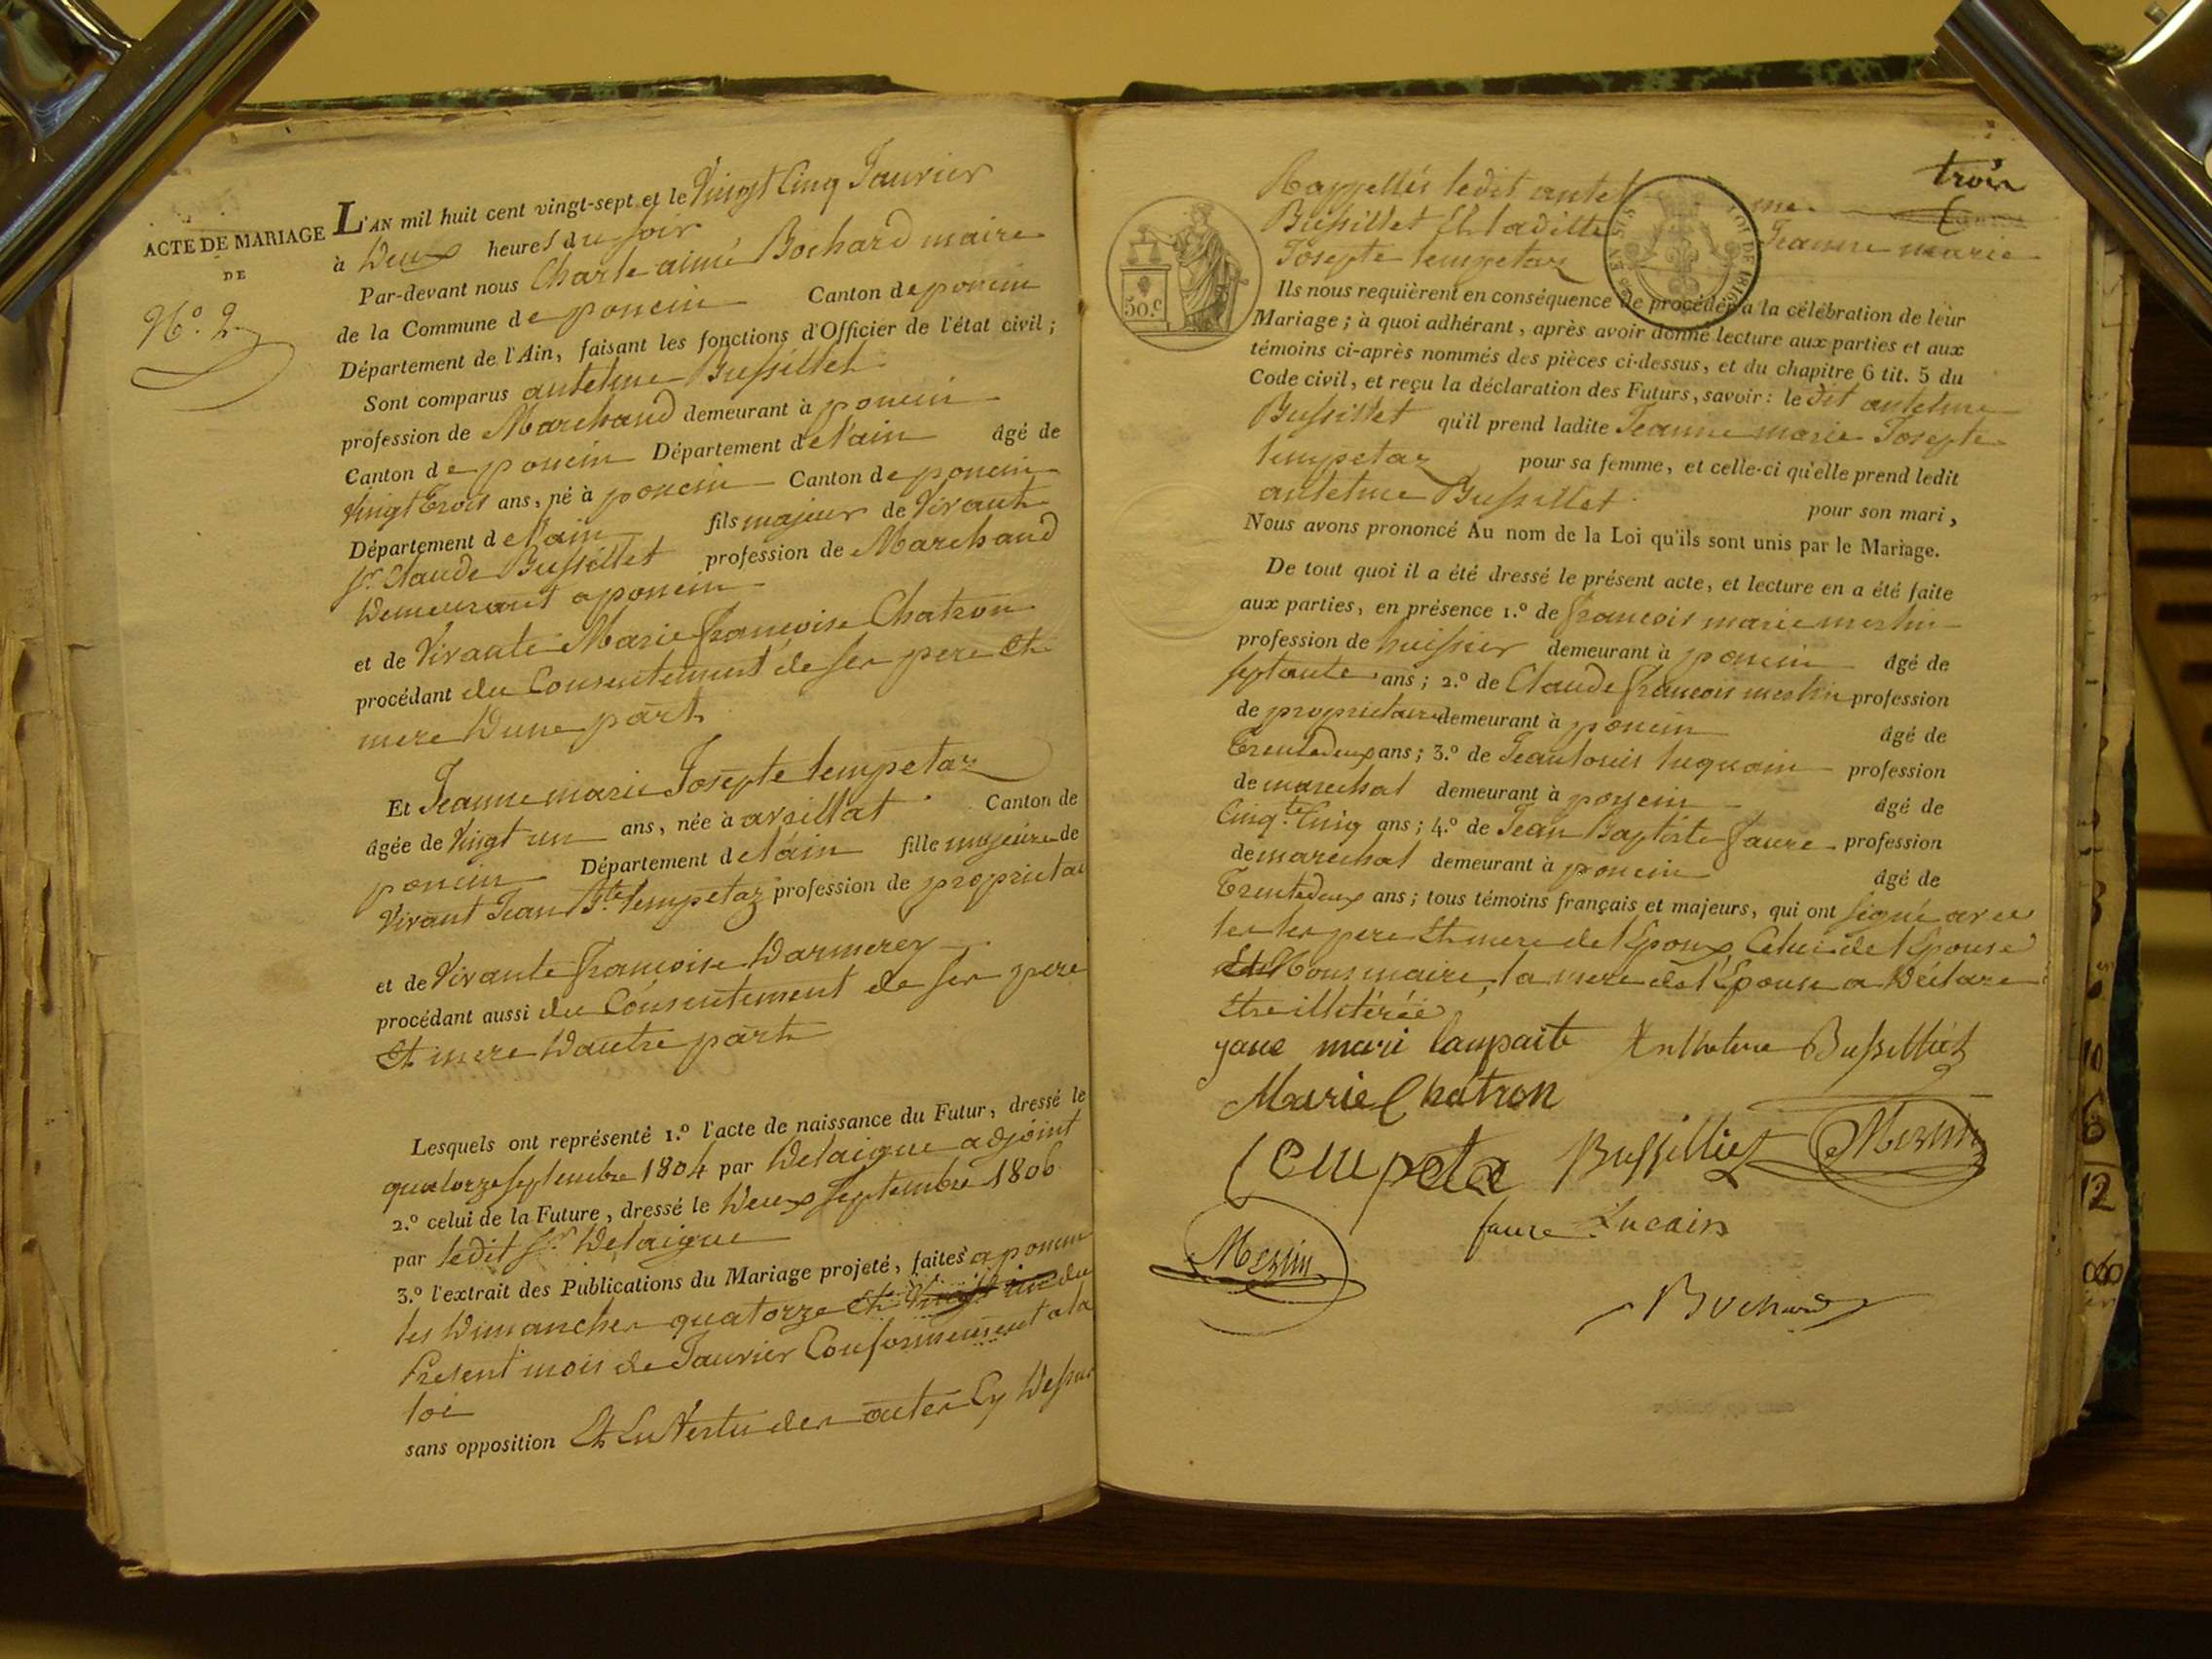 ACTE DE MARIAGE
DE
N.º 2
L'AN mil huit cent vingt-sept et le Vingt Cinq Janvier
à Deux heures du soir
Par-devant nous Charle aimé Bochard maire
de la Commune de poncin Canton de poncin
Département de l'Ain, faisant les fonctions d'Officier de l'état civil;
Sont comparus antelme Bussillet
profession de Marchand demeurant à poncin
Canton de poncin Département de l'ain âgé de
Vingt Trois ans, né à poncin Canton de poncin
Département de l'ain fils majeur de Vivant
Sr. Claude Bussillet profession de Marchand
Demeurant a poncin
et de Vivante Marie françoise Chatron
procédant du Consentement de ses pere Et
mere D'une part
Et Jeanne marie Josepte tempetaz
âgée de Vingt un ans, née à Canton de
poncin Département de l'ain fille majeure de
Vivant Jean Bte tempetaz profession de proprietai
et de Vivante françoise Darmerey
procédant aussi du Consentement de ses pere
Et mere D'autre part
Lesquels ont représenté 1.º l'acte de naissance du Futur, dressé le
quatorze septembre 1804 par Delaigue adjoint
2.º celui de la Future, dressé le Deux septembre 1806
par ledit Sr Delaigue
3.º l'extrait des Publications du Mariage projeté, faites a poncin
les Dimanches quatorze Et Vingt un du
Present mois de Janvier Conformement a la
loi
sans opposition Et En Vertu des actes Cy Dessus
trois
Rappellés ledit antelme
Bussillet Et laditte Jeanne marie
Josepte tempetaz
50.c
LOI DE 1816
Ils nous requièrent en conséquence de procéder à la célébration de leur
Mariage; à quoi adhérant, après avoir donné lecture aux parties et aux
témoins ci-après nommés des pièces ci-dessus, et du chapitre 6 tit. 5 du
Code civil, et reçu la déclaration des Futurs, savoir: le dit antelme
Bussillet qu'il prend ladite Jeanne marie Josepte
tempetaz pour sa femme, et celle-ci qu'elle prend ledit
antelme Bussillet pour son mari,
Nous avons prononcé Au nom de la Loi qu'ils sont unis par le Mariage.
De tout quoi il a été dressé le présent acte, et lecture en a été faite
aux parties, en présence 1.º de françois marie merlin
profession de huissier demeurant à poncin âgé de
septante ans; 2.º de Claude françois merlin profession
de proprietaire demeurant à poncin âgé de
Trente deux ans; 3.º de Jean louis luquain profession
de marechal demeurant à poncin âgé de
Cinq.te Cinq ans; 4.º de Jean Baptiste faure profession
de marechal demeurant à poncin âgé de
Trente deux ans; tous témoins français et majeurs, qui ont signé avec
les pere Et mere de l'Epoux, Celui de l'Epouse
Et Nous maire, la mere de l'Epouse a Déclaré
Etre illitérée
jane mari lanpaite Anthelme Bussilliet
Marie Chatron
tempeta Bussilliet Merlin
faure Lucain
Merlin
Bochard